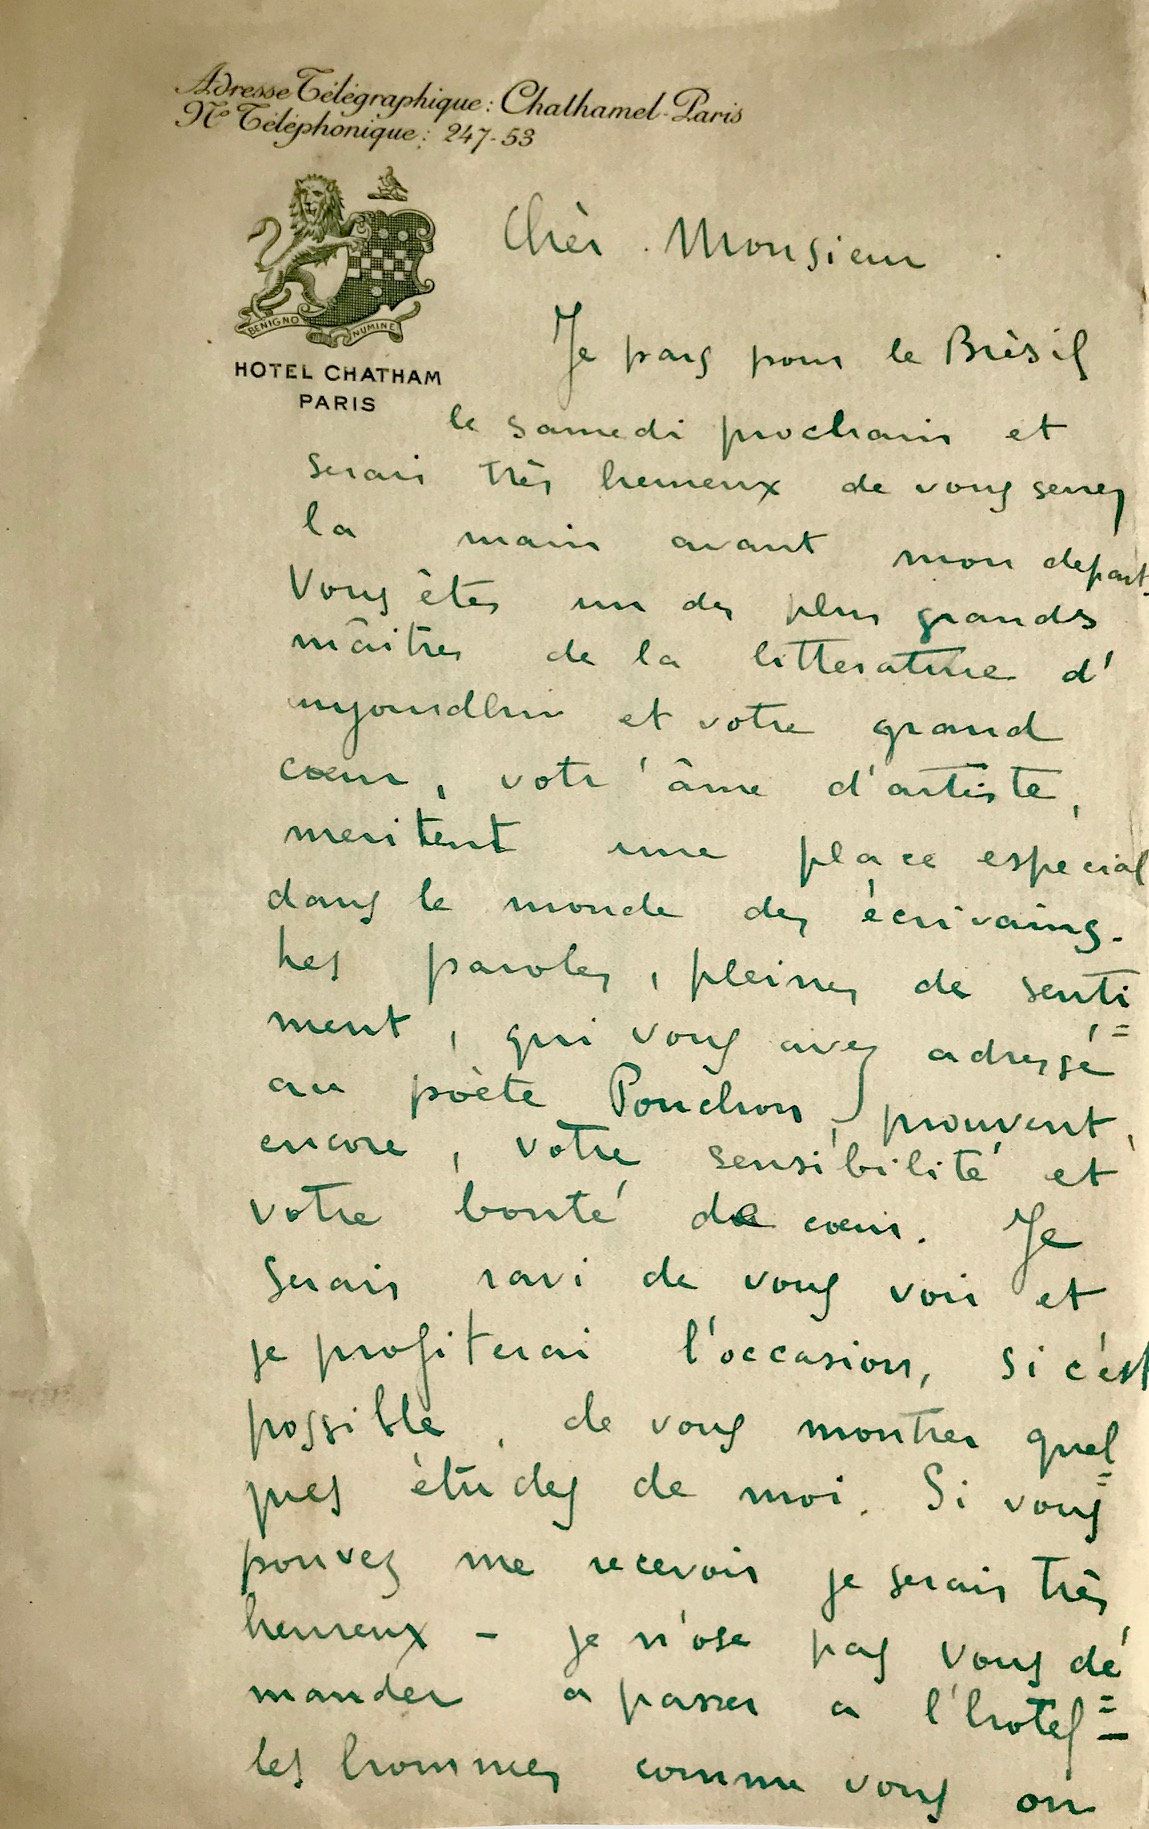 Adresse Télégraphique: Chathamel-Paris
No Téléphonique: 247-53
BENIGNO NUMINE
HOTEL CHATHAM
PARIS
Chèr Monsieur
Je pars pour le Brèsil
le samedi prochain et
serais très hereux de vous serrer
la main avant mon depart.
Vous êtes un des plus grands
mâitres de la litterature d'
aujourdhui et votre grand
cœur, votr' âme d'artiste,
meritent une place especial
dans le monde des écrivains.
Les paroles, pleines de senti
ment, qui vous avez adressé
au poète Ponchon, prouvent,
encore, votre sensibilité et
votre bonté de cœur. Je
serais ravi de vous voir et
je profiterai l'occasion, si c'est
possible, de vous montrer quel
ques ètudes de moi. Si vous
pouvez me recevoir je serais très
heureux - je n'ose pas vous de
mander a passer a l'hotel -
les hommes comme vous on